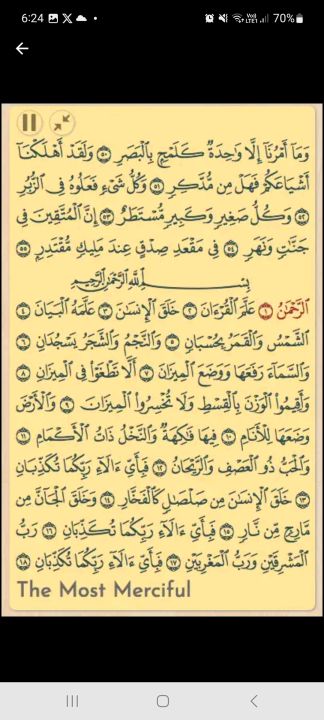 6:24 70%
وَمَآ أَمْرُنَآ إِلَّا وَٰحِدَةٌ كَلَمْحٍۭ بِٱلْبَصَرِ ٥٠ وَلَقَدْ أَهْلَكْنَآ
أَشْيَاعَكُمْ فَهَلْ مِن مُّدَّكِرٍ ٥١ وَكُلُّ شَىْءٍ فَعَلُوهُ فِى ٱلزُّبُرِ
٥٢ وَكُلُّ صَغِيرٍ وَكَبِيرٍ مُّسْتَطَرٌ ٥٣ إِنَّ ٱلْمُتَّقِينَ فِى
جَنَّٰتٍ وَنَهَرٍ ٥٤ فِى مَقْعَدِ صِدْقٍ عِندَ مَلِيكٍ مُّقْتَدِرٍۭ ٥٥
بِسْمِ ٱللَّهِ ٱلرَّحْمَٰنِ ٱلرَّحِيمِ
ٱلرَّحْمَٰنُ ١ عَلَّمَ ٱلْقُرْءَانَ ٢ خَلَقَ ٱلْإِنسَٰنَ ٣ عَلَّمَهُ ٱلْبَيَانَ ٤
ٱلشَّمْسُ وَٱلْقَمَرُ بِحُسْبَانٍ ٥ وَٱلنَّجْمُ وَٱلشَّجَرُ يَسْجُدَانِ ٦
وَٱلسَّمَآءَ رَفَعَهَا وَوَضَعَ ٱلْمِيزَانَ ٧ أَلَّا تَطْغَوْا۟ فِى ٱلْمِيزَانِ ٨
وَأَقِيمُوا۟ ٱلْوَزْنَ بِٱلْقِسْطِ وَلَا تُخْسِرُوا۟ ٱلْمِيزَانَ ٩ وَٱلْأَرْضَ
وَضَعَهَا لِلْأَنَامِ ١٠ فِيهَا فَٰكِهَةٌ وَٱلنَّخْلُ ذَاتُ ٱلْأَكْمَامِ ١١
وَٱلْحَبُّ ذُو ٱلْعَصْفِ وَٱلرَّيْحَانُ ١٢ فَبِأَىِّ ءَالَآءِ رَبِّكُمَا تُكَذِّبَانِ
١٣ خَلَقَ ٱلْإِنسَٰنَ مِن صَلْصَٰلٍ كَٱلْفَخَّارِ ١٤ وَخَلَقَ ٱلْجَآنَّ مِن
مَّارِجٍ مِّن نَّارٍ ١٥ فَبِأَىِّ ءَالَآءِ رَبِّكُمَا تُكَذِّبَانِ ١٦ رَبُّ
ٱلْمَشْرِقَيْنِ وَرَبُّ ٱلْمَغْرِبَيْنِ ١٧ فَبِأَىِّ ءَالَآءِ رَبِّكُمَا تُكَذِّبَانِ ١٨
The Most Merciful